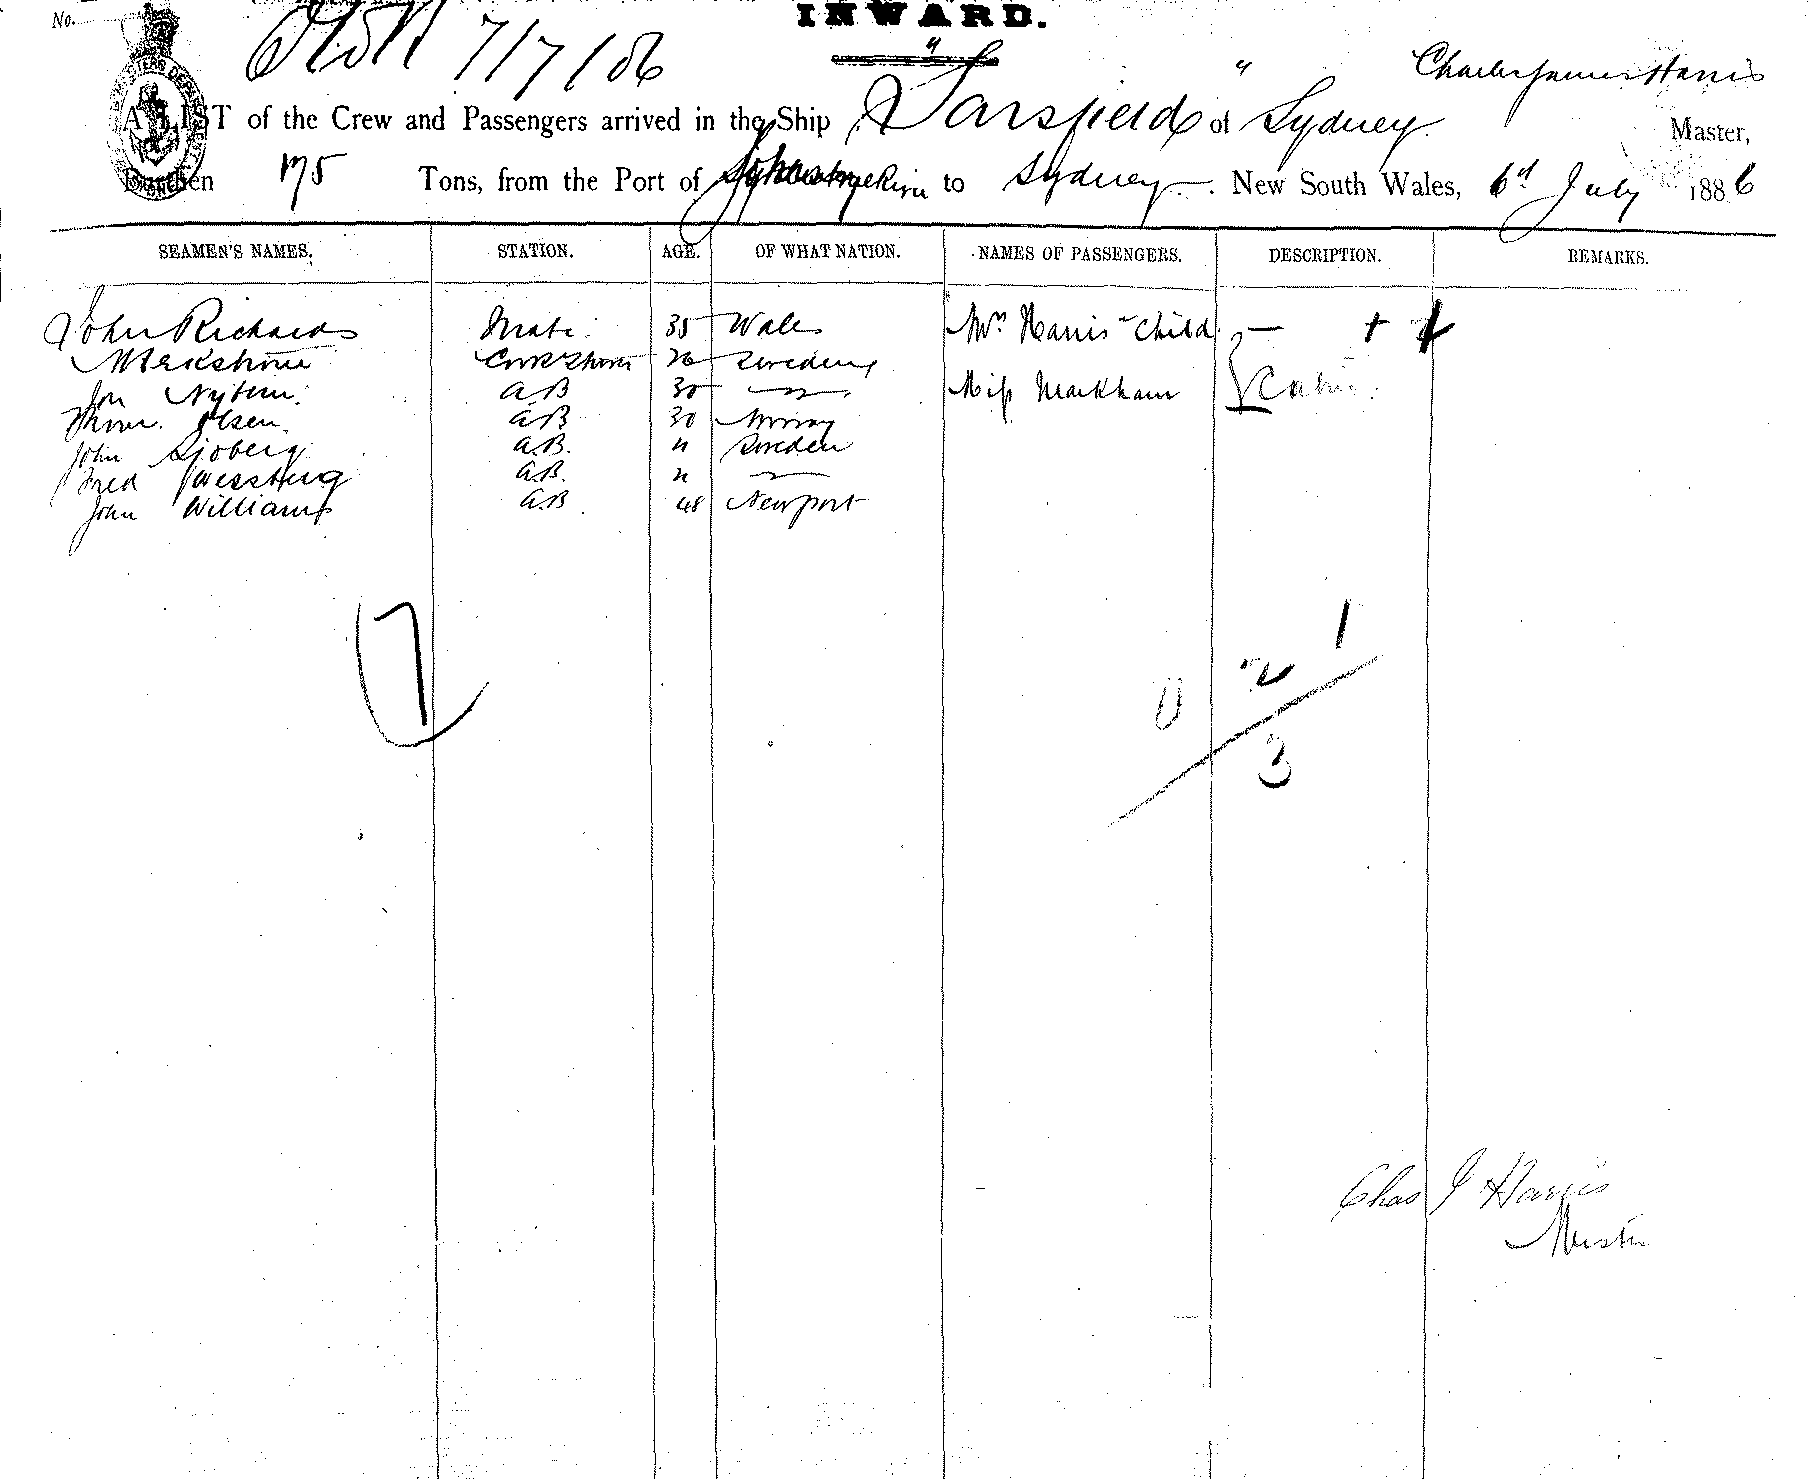 No.
INWARD.
7/7/86
Charles James Harris
A LIST of the Crew and Passengers arrived in the Ship "Sarsfield" of Sydney Master,
Burthen 175 Tons, from the Port of to Sydney New South Wales, 6th July 1886
SEAMEN'S NAMES. STATION. AGE. OF WHAT NATION. NAMES OF PASSENGERS. DESCRIPTION. REMARKS.
John Richards Mate 35 Wales Mrs Harris Child
26 Sweden
A.B 30 Miss Markham Cabin
Olsen A.B 30 Norway
John Sjoberg A.B. " Sweden
Fred A.B. "
John Williams A.B 48 Newport
7
1
2
0
3
Chas J Harris
Master